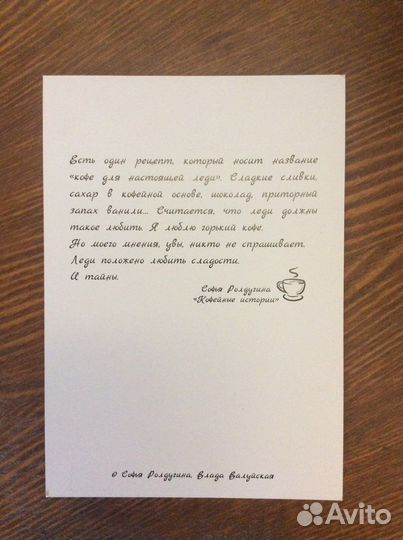 Есть один рецепт, который носит название
«кофе для настоящей леди». Сладкие сливки,
сахар в кофейной основе, шоколад, приторный
запах ванили... Считается, что леди должны
такое любить. Я люблю горький кофе.
Но моего мнения, увы, никто не спрашивает.
Леди положено любить сладости.
И тайны.
Софья Ролдугина
«Кофейные истории»
© Софья Ролдугина, Влада Валуйская
Avito